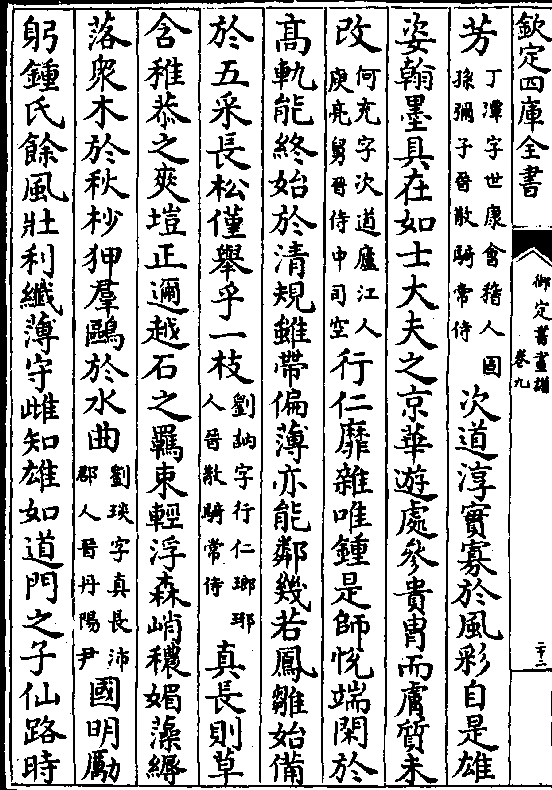 欽定四庫全書
御定書畫譜
卷九
二十二
芳丁潭字世康會稽人固
孫彌子晉散騎常侍
次道淳實寡於風彩自是雄
姿翰墨具在如士大夫之京華遊處參貴胄而膚質未
改何充字次道廬江人
庾亮舅晉侍中司空
行仁靡雜唯鍾是師悅端閑於
高軌能終始於清規雖帶偏薄亦能鄰幾若鳳雛始備
於五采長松僅舉乎一枝劉訥字行仁瑯琊
人晉散騎常侍
真長則草
含稚恭之爽塏正邇越石之羈束輕浮森峭穠媚藻縟
落眾木於秋杪狎羣鷗於水曲劉琰字真長沛
郡人晉丹陽尹
國明勵
躬鍾氏餘風壯利纖薄守雌知雄如道門之子仙路時